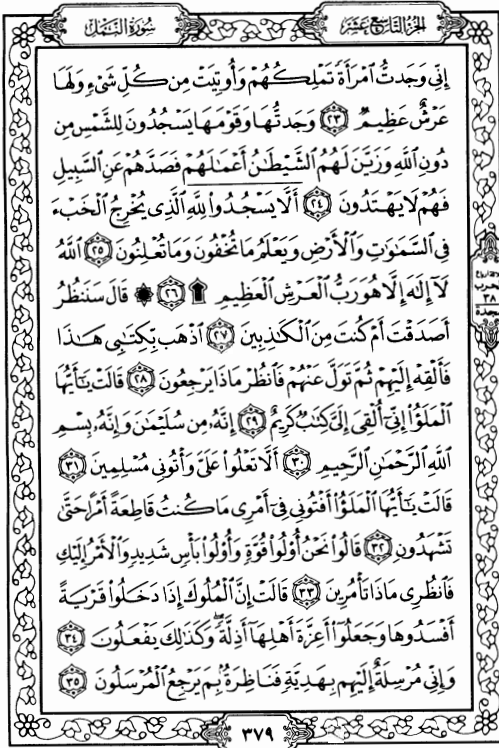 الجزء التاسع عشر
سورة النمل
إِنِّي وَجَدتُّ ٱمْرَأَةً تَمْلِكُهُمْ وَأُوتِيَتْ مِن كُلِّ شَىْءٍ وَلَهَا
عَرْشٌ عَظِيمٌ ﴿٢٣﴾ وَجَدتُّهَا وَقَوْمَهَا يَسْجُدُونَ لِلشَّمْسِ مِن
دُونِ ٱللَّهِ وَزَيَّنَ لَهُمُ ٱلشَّيْطَٰنُ أَعْمَٰلَهُمْ فَصَدَّهُمْ عَنِ ٱلسَّبِيلِ
فَهُمْ لَا يَهْتَدُونَ ﴿٢٤﴾ أَلَّا يَسْجُدُوا۟ لِلَّهِ ٱلَّذِى يُخْرِجُ ٱلْخَبْءَ
فِى ٱلسَّمَٰوَٰتِ وَٱلْأَرْضِ وَيَعْلَمُ مَا تُخْفُونَ وَمَا تُعْلِنُونَ ﴿٢٥﴾ ٱللَّهُ
لَآ إِلَٰهَ إِلَّا هُوَ رَبُّ ٱلْعَرْشِ ٱلْعَظِيمِ ۩ ﴿٢٦﴾ ۞ قَالَ سَنَنظُرُ
أَصَدَقْتَ أَمْ كُنتَ مِنَ ٱلْكَٰذِبِينَ ﴿٢٧﴾ ٱذْهَب بِّكِتَٰبِى هَٰذَا
فَأَلْقِهْ إِلَيْهِمْ ثُمَّ تَوَلَّ عَنْهُمْ فَٱنظُرْ مَاذَا يَرْجِعُونَ ﴿٢٨﴾ قَالَتْ يَٰٓأَيُّهَا
ٱلْمَلَؤُا۟ إِنِّىٓ أُلْقِىَ إِلَىَّ كِتَٰبٌ كَرِيمٌ ﴿٢٩﴾ إِنَّهُۥ مِن سُلَيْمَٰنَ وَإِنَّهُۥ بِسْمِ
ٱللَّهِ ٱلرَّحْمَٰنِ ٱلرَّحِيمِ ﴿٣٠﴾ أَلَّا تَعْلُوا۟ عَلَىَّ وَأْتُونِى مُسْلِمِينَ ﴿٣١﴾
قَالَتْ يَٰٓأَيُّهَا ٱلْمَلَؤُا۟ أَفْتُونِى فِىٓ أَمْرِى مَا كُنتُ قَاطِعَةً أَمْرًا حَتَّىٰ
تَشْهَدُونِ ﴿٣٢﴾ قَالُوا۟ نَحْنُ أُو۟لُوا۟ قُوَّةٍ وَأُو۟لُوا۟ بَأْسٍ شَدِيدٍ وَٱلْأَمْرُ إِلَيْكِ
فَٱنظُرِى مَاذَا تَأْمُرِينَ ﴿٣٣﴾ قَالَتْ إِنَّ ٱلْمُلُوكَ إِذَا دَخَلُوا۟ قَرْيَةً
أَفْسَدُوهَا وَجَعَلُوٓا۟ أَعِزَّةَ أَهْلِهَآ أَذِلَّةً ۖ وَكَذَٰلِكَ يَفْعَلُونَ ﴿٣٤﴾
وَإِنِّى مُرْسِلَةٌ إِلَيْهِم بِهَدِيَّةٍ فَنَاظِرَةٌۢ بِمَ يَرْجِعُ ٱلْمُرْسَلُونَ ﴿٣٥﴾
الحزب
٣٨
سجدة
٣٧٩